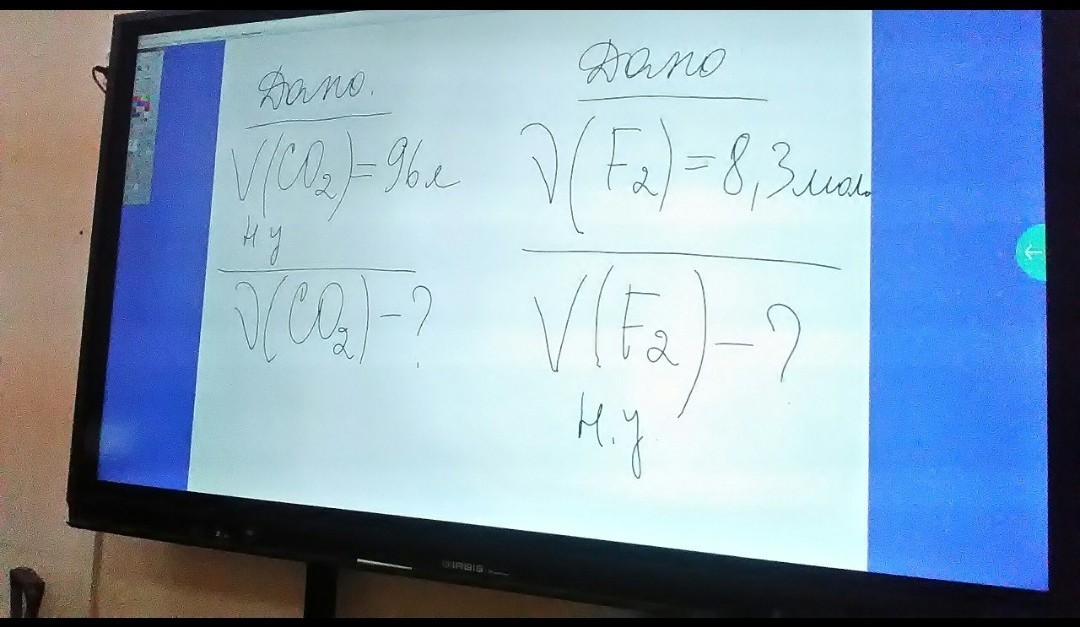 Дано.
V(CO2)=96л
н у
ν(CO2)-?
Дано
ν(F2)=8,3мол
V(F2)-?
н.у
IRBIS